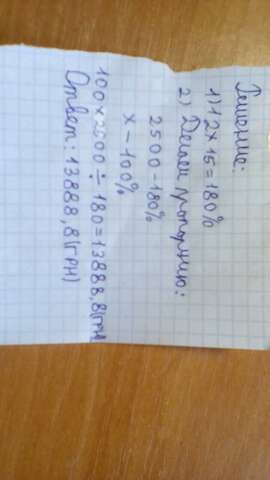 Решение:
1) 12 × 15 = 180%
2) Делаем пропорцию:
2500 - 180%
x - 100%
100 × 2500 ÷ 180 = 13888,8 (ГРН)
Ответ: 13888,8 (ГРН)